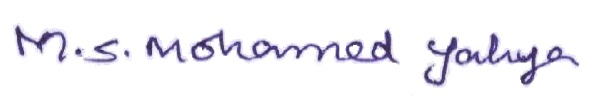 M.S. Mohamed Yahya